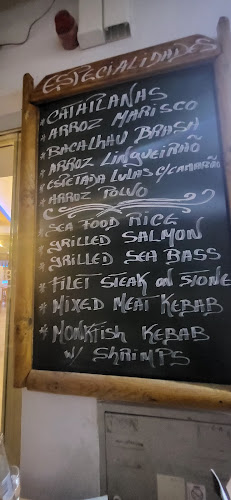 ESPECIALIDADES
* CATAPLANAS
* ARROZ MARISCO
* BACALHAU BRASA
* ARROZ LINGUEIRÃO
* ESPETADA LULAS C/CAMARÃO
* ARROZ POLVO
SEA FOOD RICE
* GRILLED SALMON
* GRILLED SEA BASS
* FILET STEAK ON STONE
* MIXED MEAT KEBAB
* MONKFISH KEBAB
W/ SHRIMPS